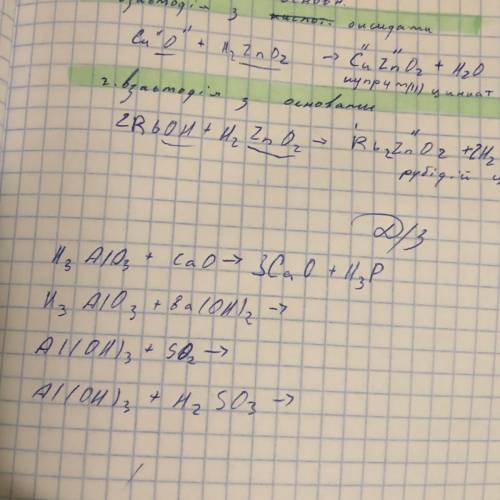 взаємодія з основн.
оксидами
Cu O + H₂ ZnO₂ → Cu ZnO₂ + H₂O
купрум(II) цинкат
2. взаємодія з основами
2RbOH + H₂ ZnO₂ → Rb₂ZnO₂ + 2H₂
рубідій ц
Д/З
H₃ AlO₃ + CaO → 3CaO + H₃P
H₃ AlO₃ + Ba(OH)₂ →
Al(OH)₃ + SO₂ →
Al(OH)₃ + H₂ SO₃ →